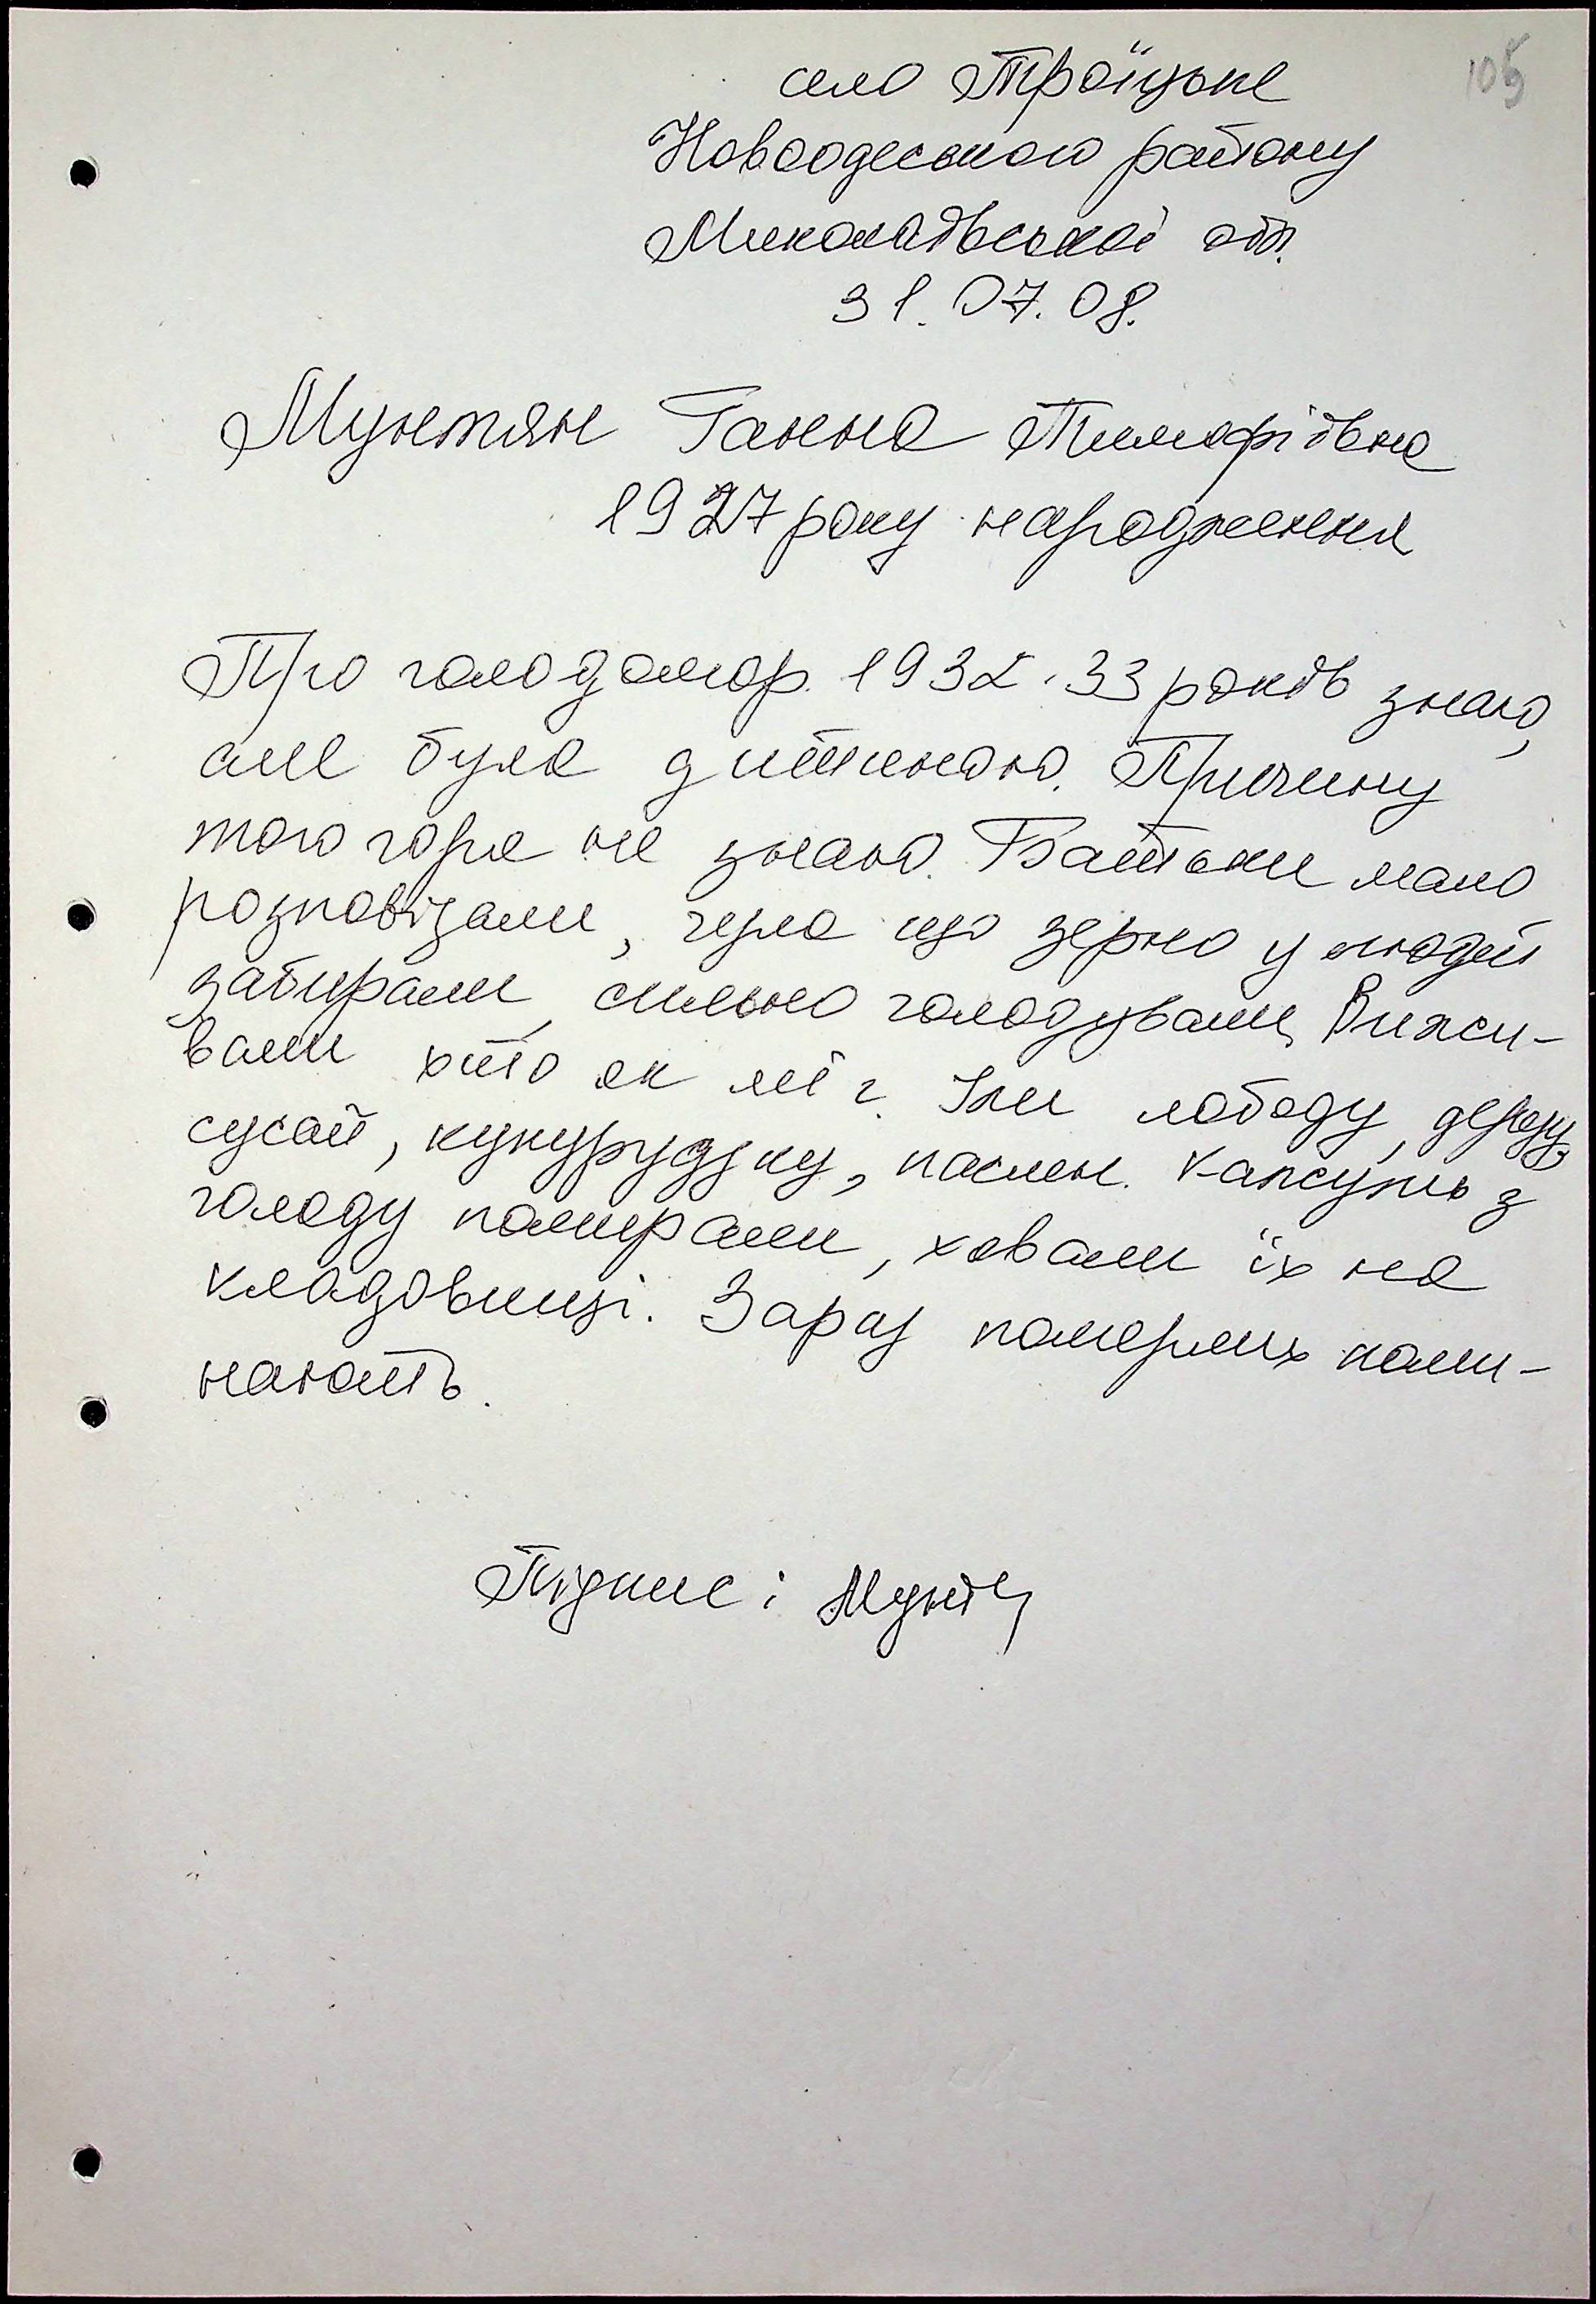 105
село Троїцьке
Новоодеського району
Миколаївської обл.
31.07.08.
Мунтян Ганна Тимофіївна
1927 року народження
Про голодомор 1932-33 років знаю,
але була дитиною. Причину
того горя не знаю. Батьки мало
розповідали, чула що зерно у людей
забирали, сильно голодували. Вижи-
вали хто як міг. Їли лободу,
сусай, кукурудзку, паслен. Кажуть з
голоду помирали, ховали їх на
кладовищі. Зараз померлих поми-
нають.
Підпис: